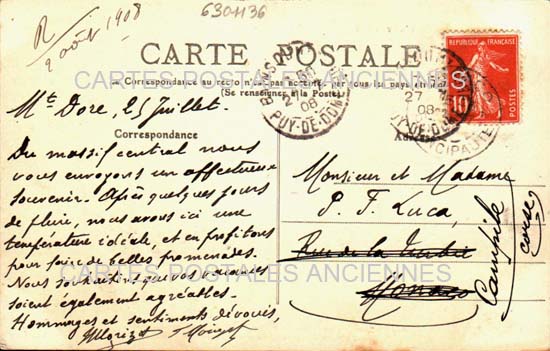 R
2 août 1908
6304136
CARTE POSTALE
CARTES POSTALES ANCIENNES
Correspondance au recto
(Se renseigner à la Poste)
REPUBLIQUE FRANÇAISE
10
POSTES
27
08
PUY-DE-DOME
08
PUY-DE-DOME
Mt Dore, 25 Juillet.
Correspondance
Du massif central nous
vous envoyons un affectueux
souvenir. Après quelques jours
de pluie, nous avons ici une
température idéale, et en profitons
pour faire de belles promenades.
Nous souhaitons que vos vacances
soient également agréables.
Hommages et sentiments dévoués,
Monsieur et Madame
P. F. Luca,
Rue de la Turbie
Monaco
Campile
Corse
CARTES POSTALES ANCIENNES